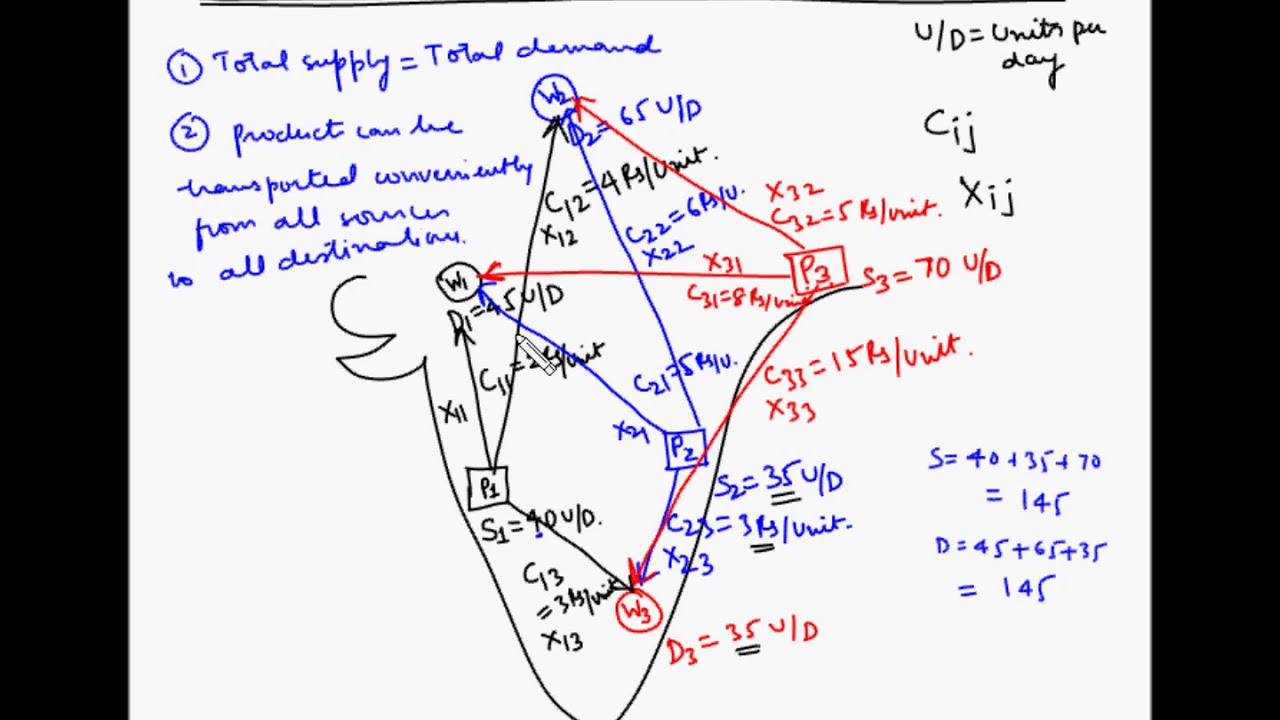 ① Total supply = Total demand
② product can be
transported conveniently
from all sources
to all destinations.
U/D = Units per
day
Cij
Xij
W2
D2 = 65 U/D
C12 = 4 Rs/unit.
X12
C22 = 6 Rs/U.
X22
X32
C32 = 5 Rs/unit.
P3
S3 = 70 U/D
X31
C31 = 8 Rs/unit
W1
D1 = 45 U/D
C11 = Rs/unit
X11
C21 = 5 Rs/U.
X21
C33 = 15 Rs/unit.
X33
P2
S2 = 35 U/D
C23 = 3 Rs/unit.
X23
P1
S1 = 40 U/D.
C13
= 3 Rs/unit
X13
W3
D3 = 35 U/D
S = 40 + 35 + 70
= 145
D = 45 + 65 + 35
= 145